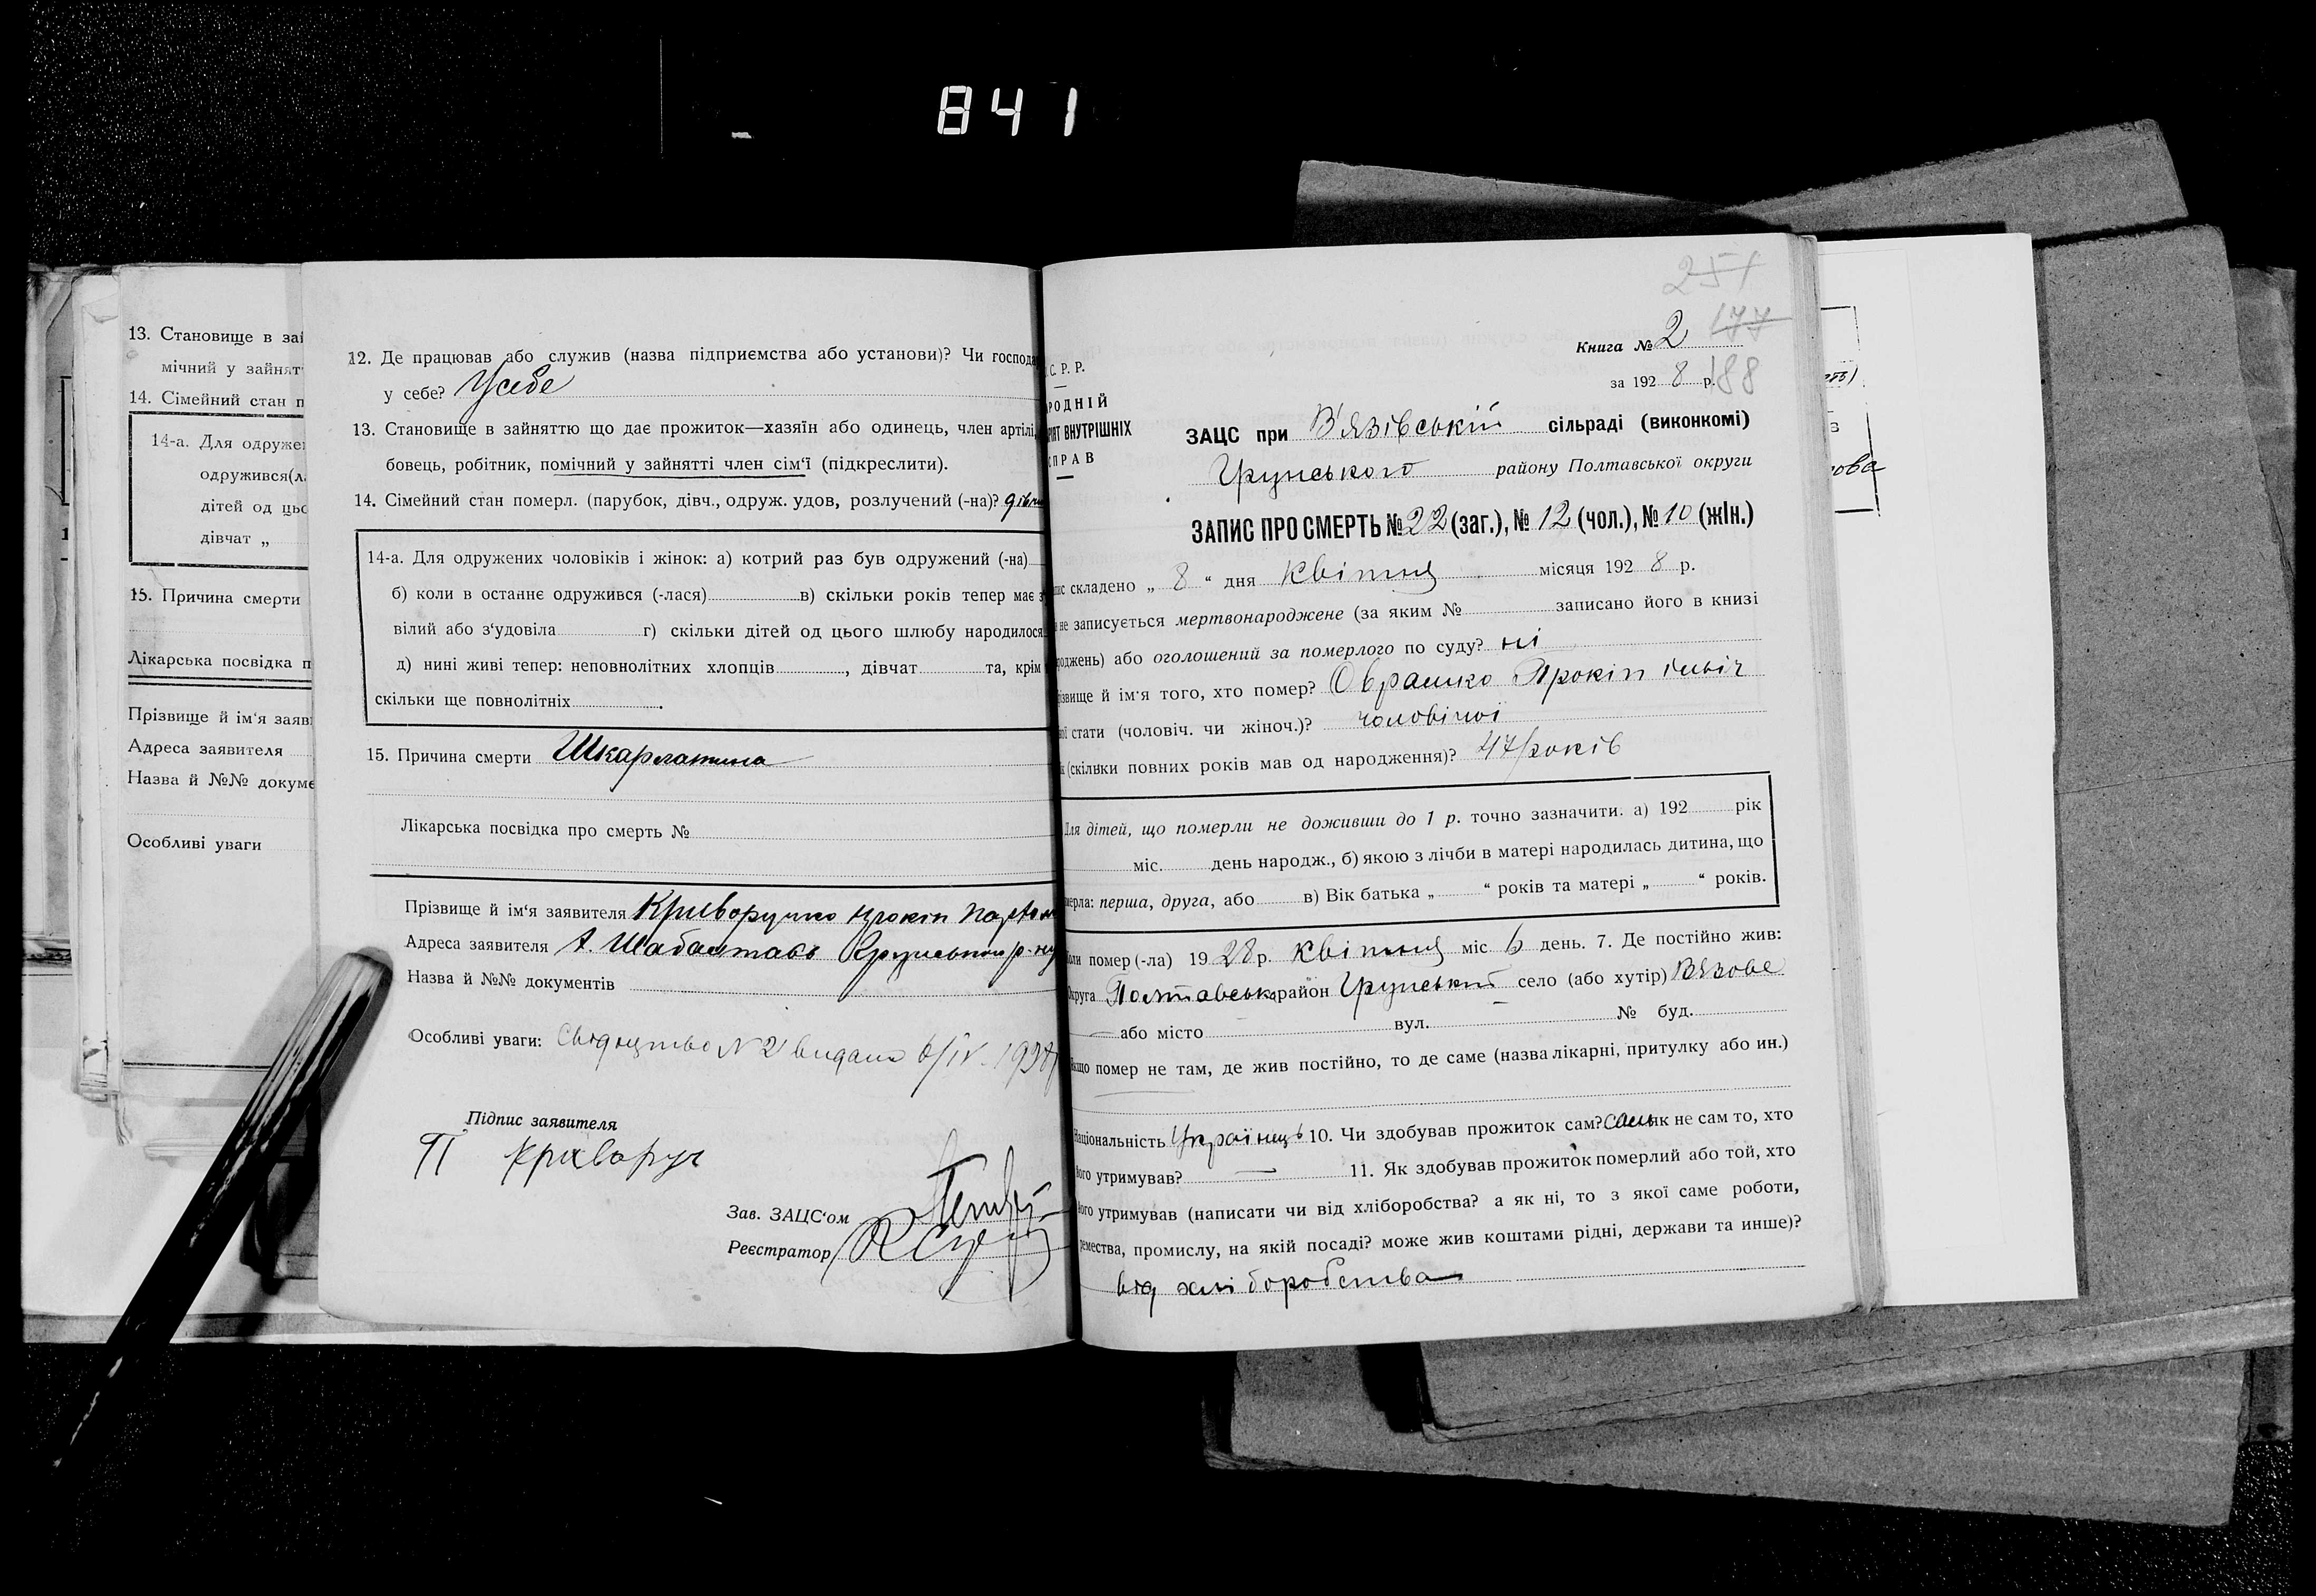 841
13. Становище в зай
мічний у зайнят
14. Сімейний стан п
14-а. Для одруже
одружився(л
дітей од цьо
дівчат „
15. Причина смерти
Лікарська посвідка п
Прізвище й ім‘я заяв
Адреса заявителя
Назва й №№ докуме
Особливі уваги
12. Де працював або служив (назва підприємства або установи)? Чи господа
у себе? Усебе
13. Становище в зайняттю що дає прожиток—хазяїн або одинець, член артілі,
бовець, робітник, помічний у зайнятті член сім‘ї (підкреслити).
14. Сімейний стан померл. (парубок, дівч., одруж. удов, розлучений (-на)?
14-а. Для одружених чоловіків і жінок: а) котрий раз був одружений (-на)
б) коли в останнє одружився (-лася) в) скільки років тепер має з
вілий або з‘удовіла г) скільки дітей од цього шлюбу народилося
д) нині живі тепер: неповнолітних хлопців , дівчат та, крім
скільки ще повнолітніх .
15. Причина смерти Шкарлатина
Лікарська посвідка про смерть №
Прізвище й ім‘я заявителя Криворучко
Адреса заявителя х. Шабалтаєво Грунського р-ну
Назва й №№ документів
Особливі уваги: Свідоцтво № 21 видано 6/IV. 1928
Підпис заявителя
П Криворуч
Зав. ЗАЦС‘ом
Реєстратор
251
Книга № 2 177
за 192 8 р. 188
С. Р. Р.
РОДНІЙ
РІЯТ ВНУТРІШНІХ
СПРАВ
ЗАЦС при В'язівській сільраді (виконкомі)
Грунського району Полтавської округи
ЗАПИС ПРО СМЕРТЬ № 22 (заг.), № 12 (чол.), № 10 (жін.)
пис складено „ 8 “ дня Квітня місяця 192 8 р.
не записується мертвонароджене (за яким № записано його в книзі
роджень) або оголошений за померлого по суду? ні
різвище й ім‘я того, хто помер? Оврашко Прокіп
стати (чоловіч. чи жіноч.)? чоловічої
(скільки повних років мав од народження)? 47 років
Для дітей, що померли не доживши до 1 р. точно зазначити. а) 192 рік
міс. день народж., б) якою з лічби в матері народилась дитина, що
мерла: перша, друга, або в) Вік батька „ “ років та матері „ “ років.
Коли помер (-ла) 19 28 р. Квітня міс 6 день. 7. Де постійно жив:
Округа Полтавська район Грунський село (або хутір) Вязове
або місто вул. № буд.
Якщо помер не там, де жив постійно, то де саме (назва лікарні, притулку або ин.)
Національність Українець 10. Чи здобував прожиток сам? сам як не сам то, хто
його утримував? 11. Як здобував прожиток померлий або той, хто
його утримував (написати чи від хліборобства? а як ні, то з якої саме роботи,
ремества, промислу, на якій посаді? може жив коштами рідні, держави та инше)?
від хліборобства